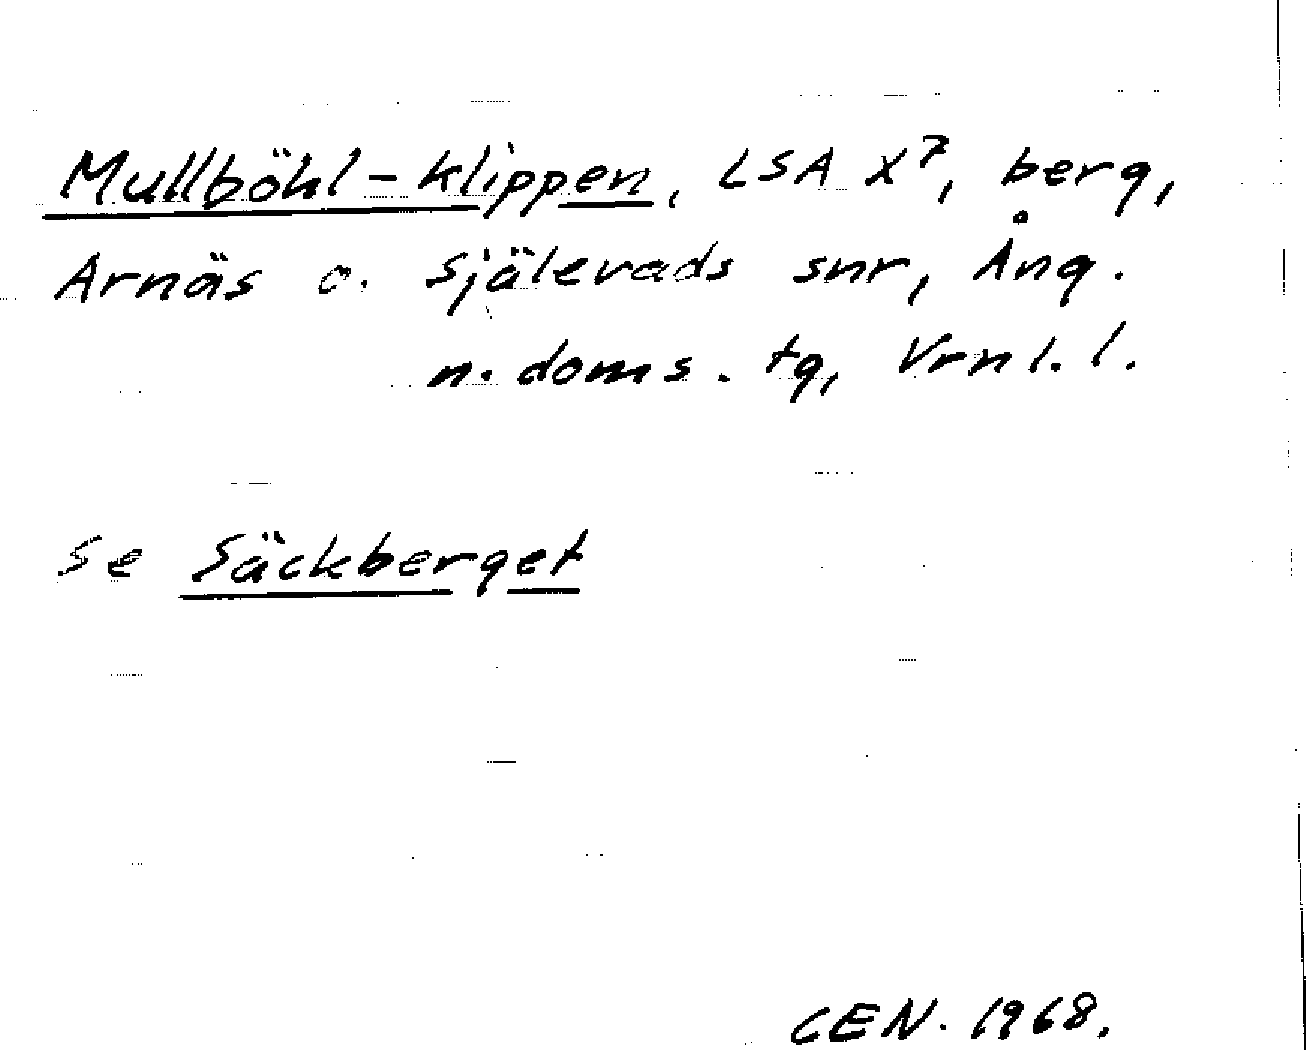 Mullböhl-klippen, LSA X⁷, berg,
Arnäs o. Själevads snr, Ång.
n. doms. tg, Vrnl. l.
se Säckberget
CEN. 1968.